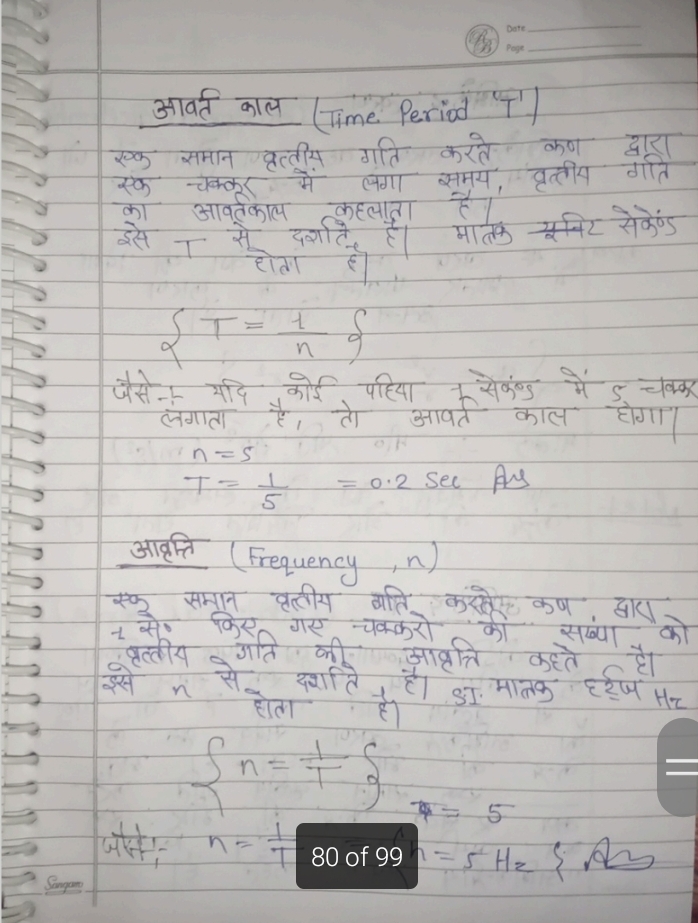 Date
Page
आवर्त काल (Time Period "T")
एक समान वृत्तीय गति करते कण द्वारा
एक चक्कर में लगा समय, वृत्तीय गति
का आवर्तकाल कहलाता है।
इसे T से दर्शाते है। मात्रक सेकेण्ड
होता है।
{ T = 1/n }
जैसे- यदि कोई पहिया 1 सेकंण्ड में 5 चक्कर
लगाता है, तो आवर्त काल होगा।
n = 5
T = 1/5 = 0.2 Sec Ans
आवृत्ति (Frequency, n)
एक समान वृत्तीय गति करते कण द्वारा
1 से० किए गए चक्करो की संख्या को
वृत्तीय गति की आवृत्ति कहते है।
इसे n से दर्शाते है। SI. मात्रक हर्ट्ज Hz
होता है।
{ n = 1/T }
= 5
जैसे:- n = 1/T = { n = 5 Hz } Ans
80 of 99
Sangam